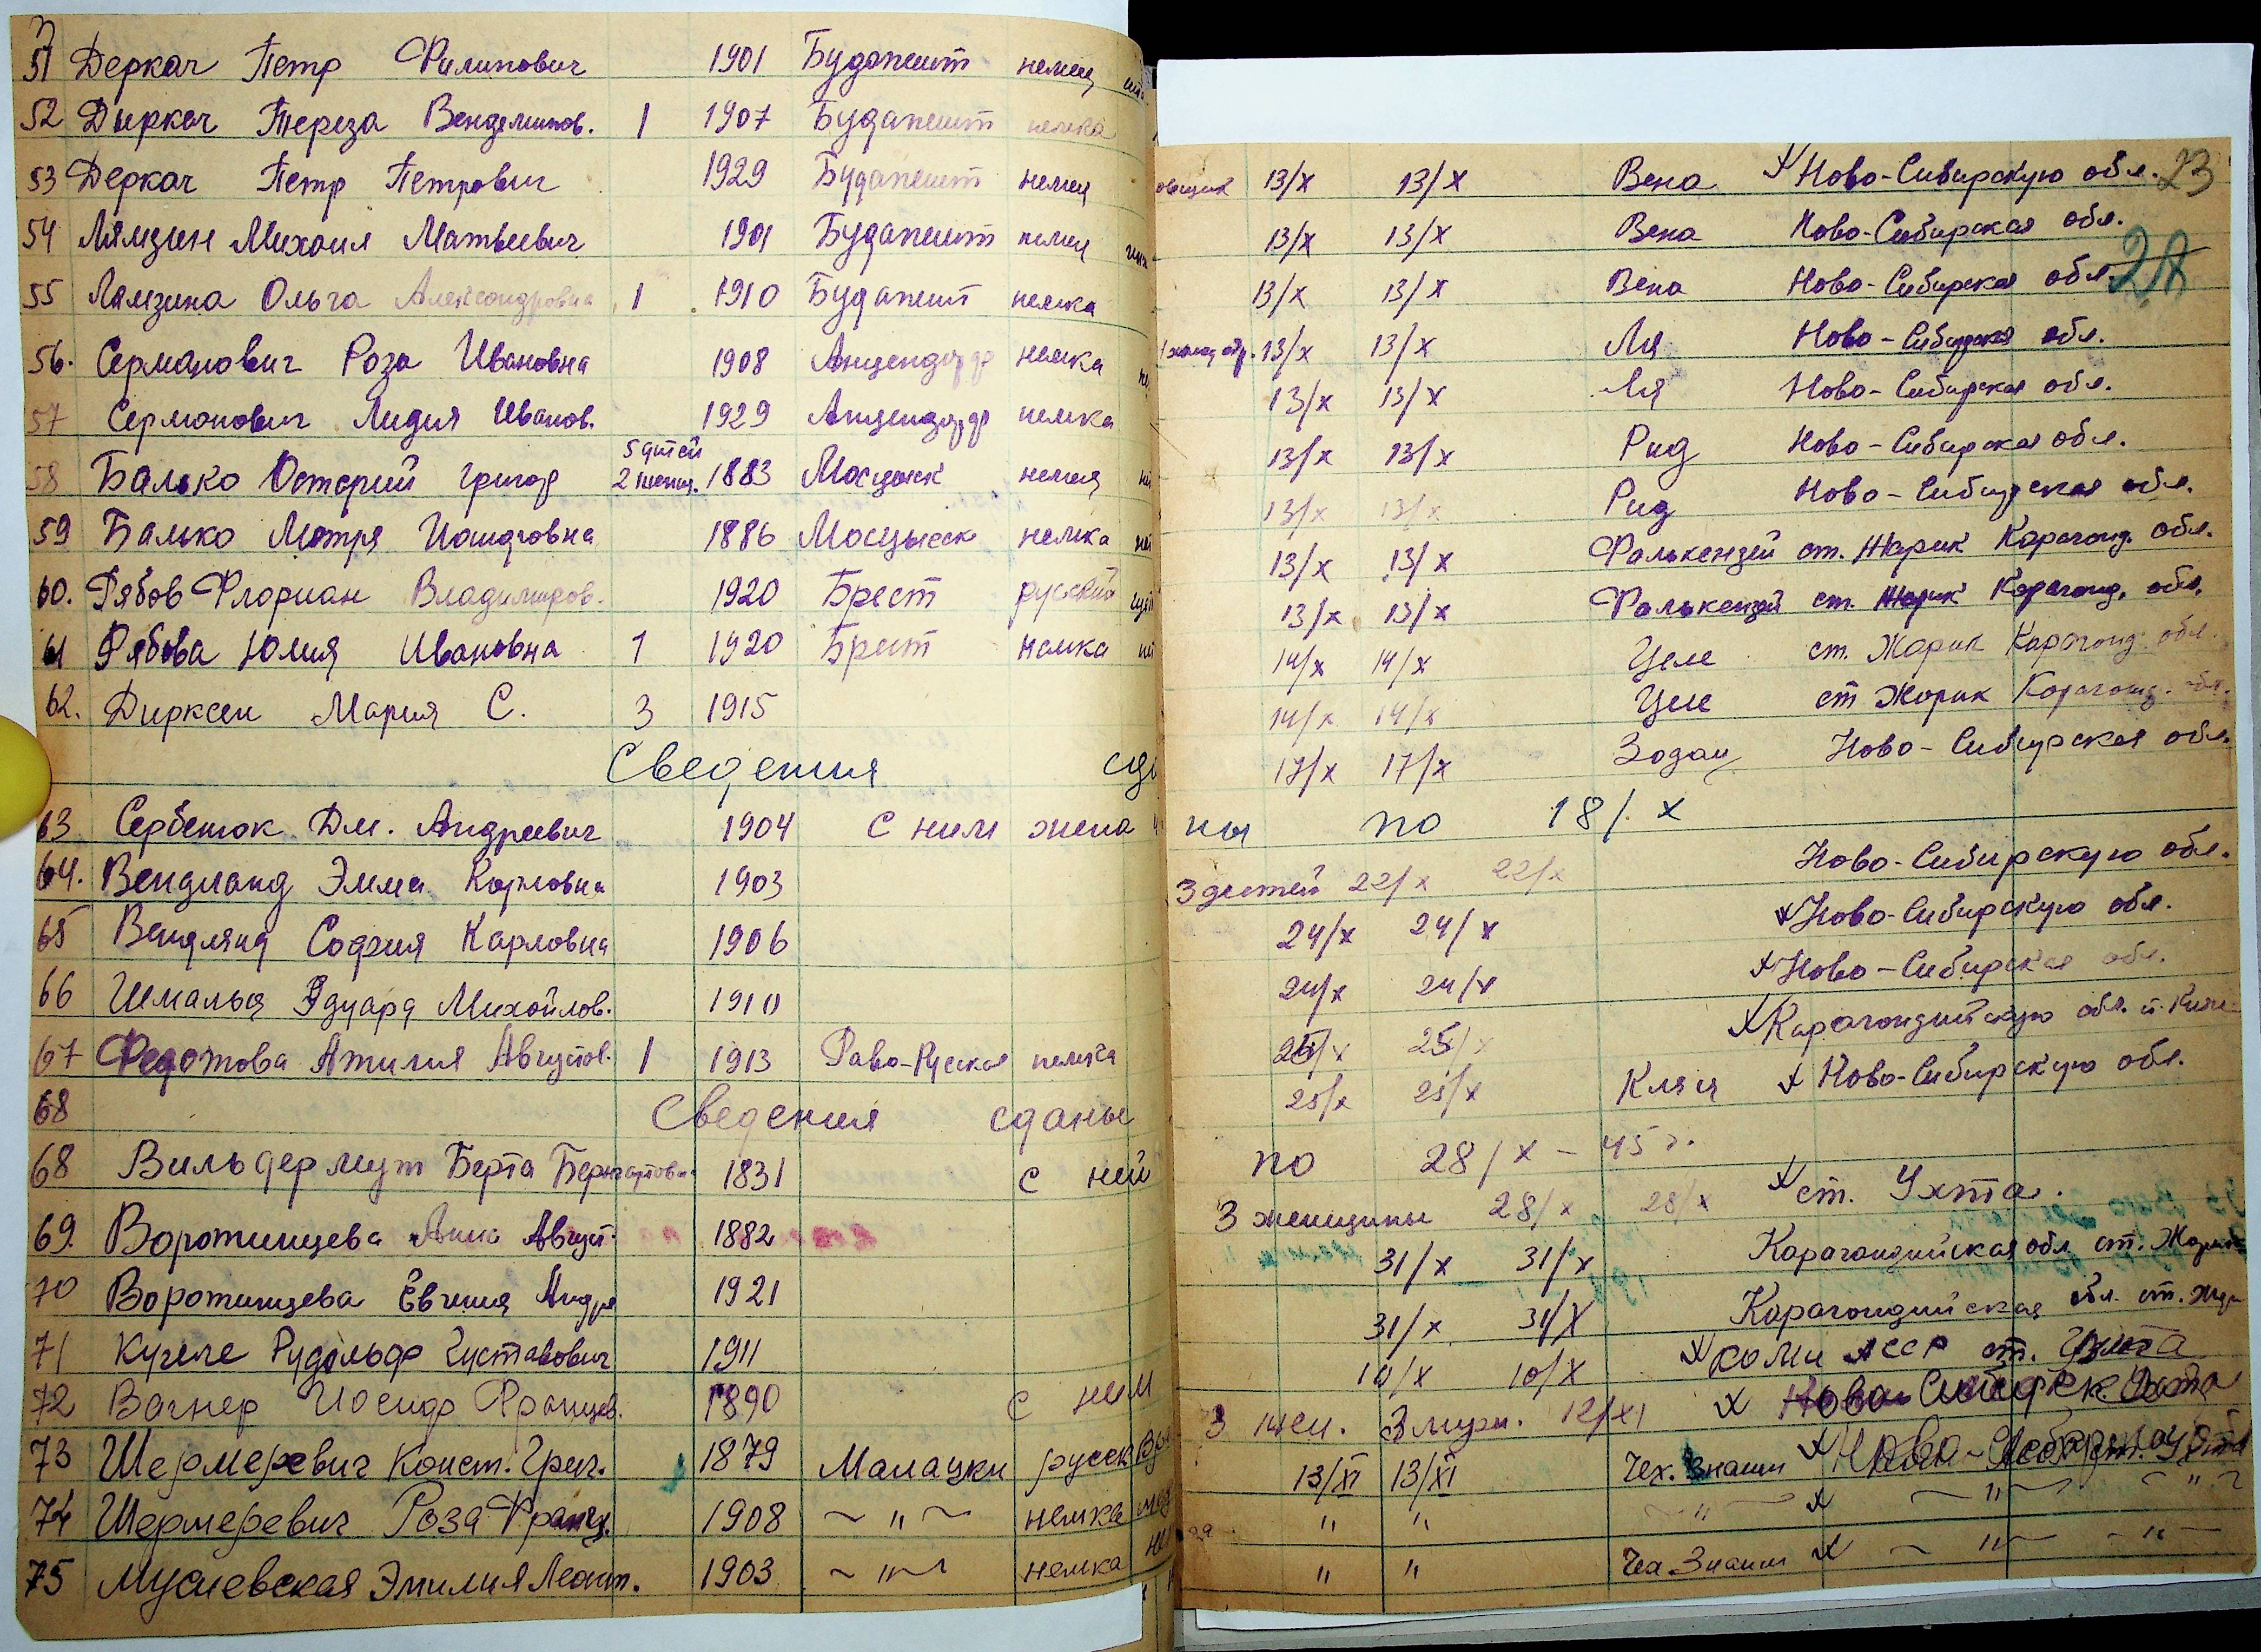 51 Деркач Петр Филипович 1901 Будапешт немец
52 Диркач Тереза Венделинов. 1 1907 Будапешт немка
53 Деркач Петр Петрович 1929 Будапешт немец
54 Лямзин Михаил Матвеевич 1901 Будапешт немец
55 Лямзина Ольга Александровна 1 1910 Будапешт немка
56. Серманович Роза Ивановна 1908 немка
57 Серманович Лидия Иванов. 1929 немка
5 дтей
58 Балько Григор 2 женщ. 1883 немец
59 Балько 1886 немка
60. Рябов Флориан Владимиров. 1920 Брест русский
61 Рябова Юлия Ивановна 1 1920 Брест немка
62. Дирксен Мария С. 3 1915
Сведения
63 Сербенюк Дм. Андреевич 1904 С ним жена
64. Вендланд Эмма Карловна 1903
65 Вендлянд София Карловна 1906
66 Шмальц Эдуард Михайлов. 1910
67 Федотова Августов. 1 1913 Рава-Русская немка
68 Сведения сданы
68 Вильдермут Берта Бернгартовна 1831 с ней
69. Воротинцева Анна Август. 1882
70 Воротинцева Евгения Андре 1921
71 Кугеле Рудольф Густавович 1911
72 Вагнер Иосиф Францев. 1890 с ним
73 Шермеревич Конст. Григ. 1879 Малацки русск
74 Шермеревич Роза Франц. 1908 ~ " ~ немка
75 Мусиевская Эмилия Леонт. 1903 ~ " ~ немка
23
овщик 13/X 13/X Вена Ново-Сибирскую обл.
13/X 13/X Вена Ново-Сибирская обл.
28
13/X 13/X Вена Ново-Сибирская обл.
13/X 13/X Ля Ново-Сибирская обл.
13/X 13/X Ля Ново-Сибирская обл.
13/X 13/X Рид Ново-Сибирская обл.
13/X 13/X Рид Ново-Сибирская обл.
13/X 13/X Фалькензей ст. Жарик Караганд. обл.
13/X 13/X Фалькензей ст. Жарик Караганд. обл.
14/X 14/X Целе ст. Жарик Караганд. обл.
14/X 14/X Целе ст Жарик Караганд. обл.
17/X 17/X Ново-Сибирская обл.
ны по 18/X
3 детей 22/X 22/X Ново-Сибирскую обл.
24/X 24/X Ново-Сибирскую обл.
24/X 24/X Ново-Сибирская обл.
25/X 25/X Карагандийскую обл.
25/X 25/X Ново-Сибирскую обл.
по 28/X - 45 г.
3 женщины 28/X 28/X ст. Ухта.
31/X 31/X Карагандийская обл. ст. Жарик
31/X 31/X Карагандийская обл. ст.
10/X 10/X Коми АССР ст. Ухта
3 жен. 3 муж. 12/XI Ухта
13/XI 13/XI Чех. Знаим Ново- ст. Ухта
" " ~ " ~ ~ " ~ ~ " ~
" " Чех. Знаим ~ " ~ ~ " ~